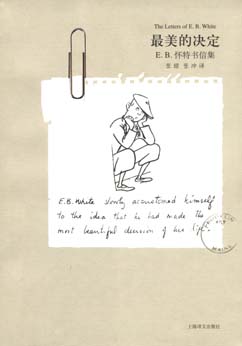 The Letters of E. B. White
最美的决定
E. B. 怀特书信集
张琼 张冲 译
E.B. White slowly accustomed himself
to the idea that he had made the
most beautiful decision of his life.
MAINE
上海译文出版社